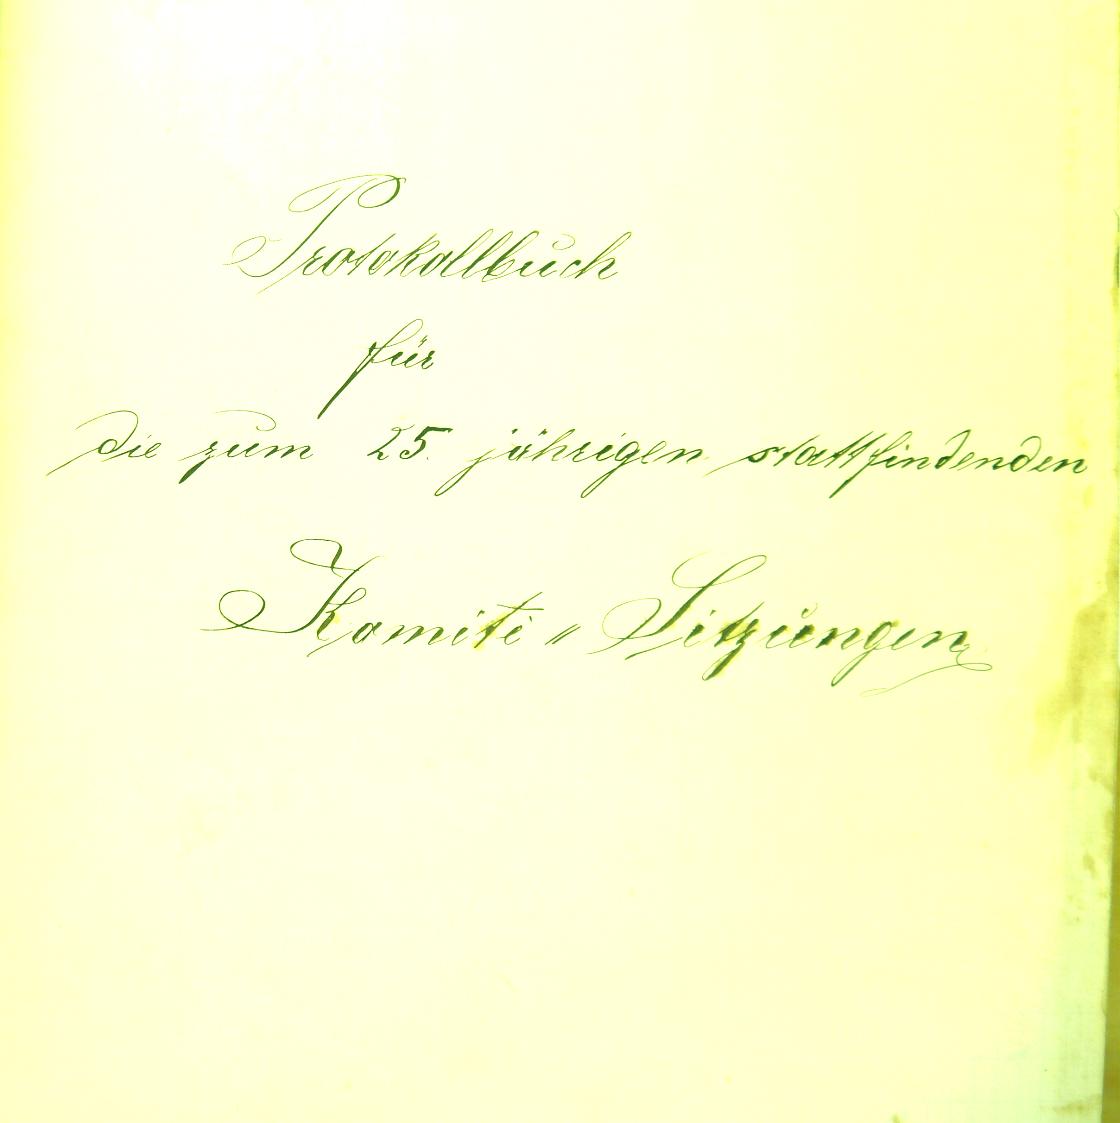 Protokollbuch
für
die zum 25. jährigen stattfindenden
Komiti " Sitzungen